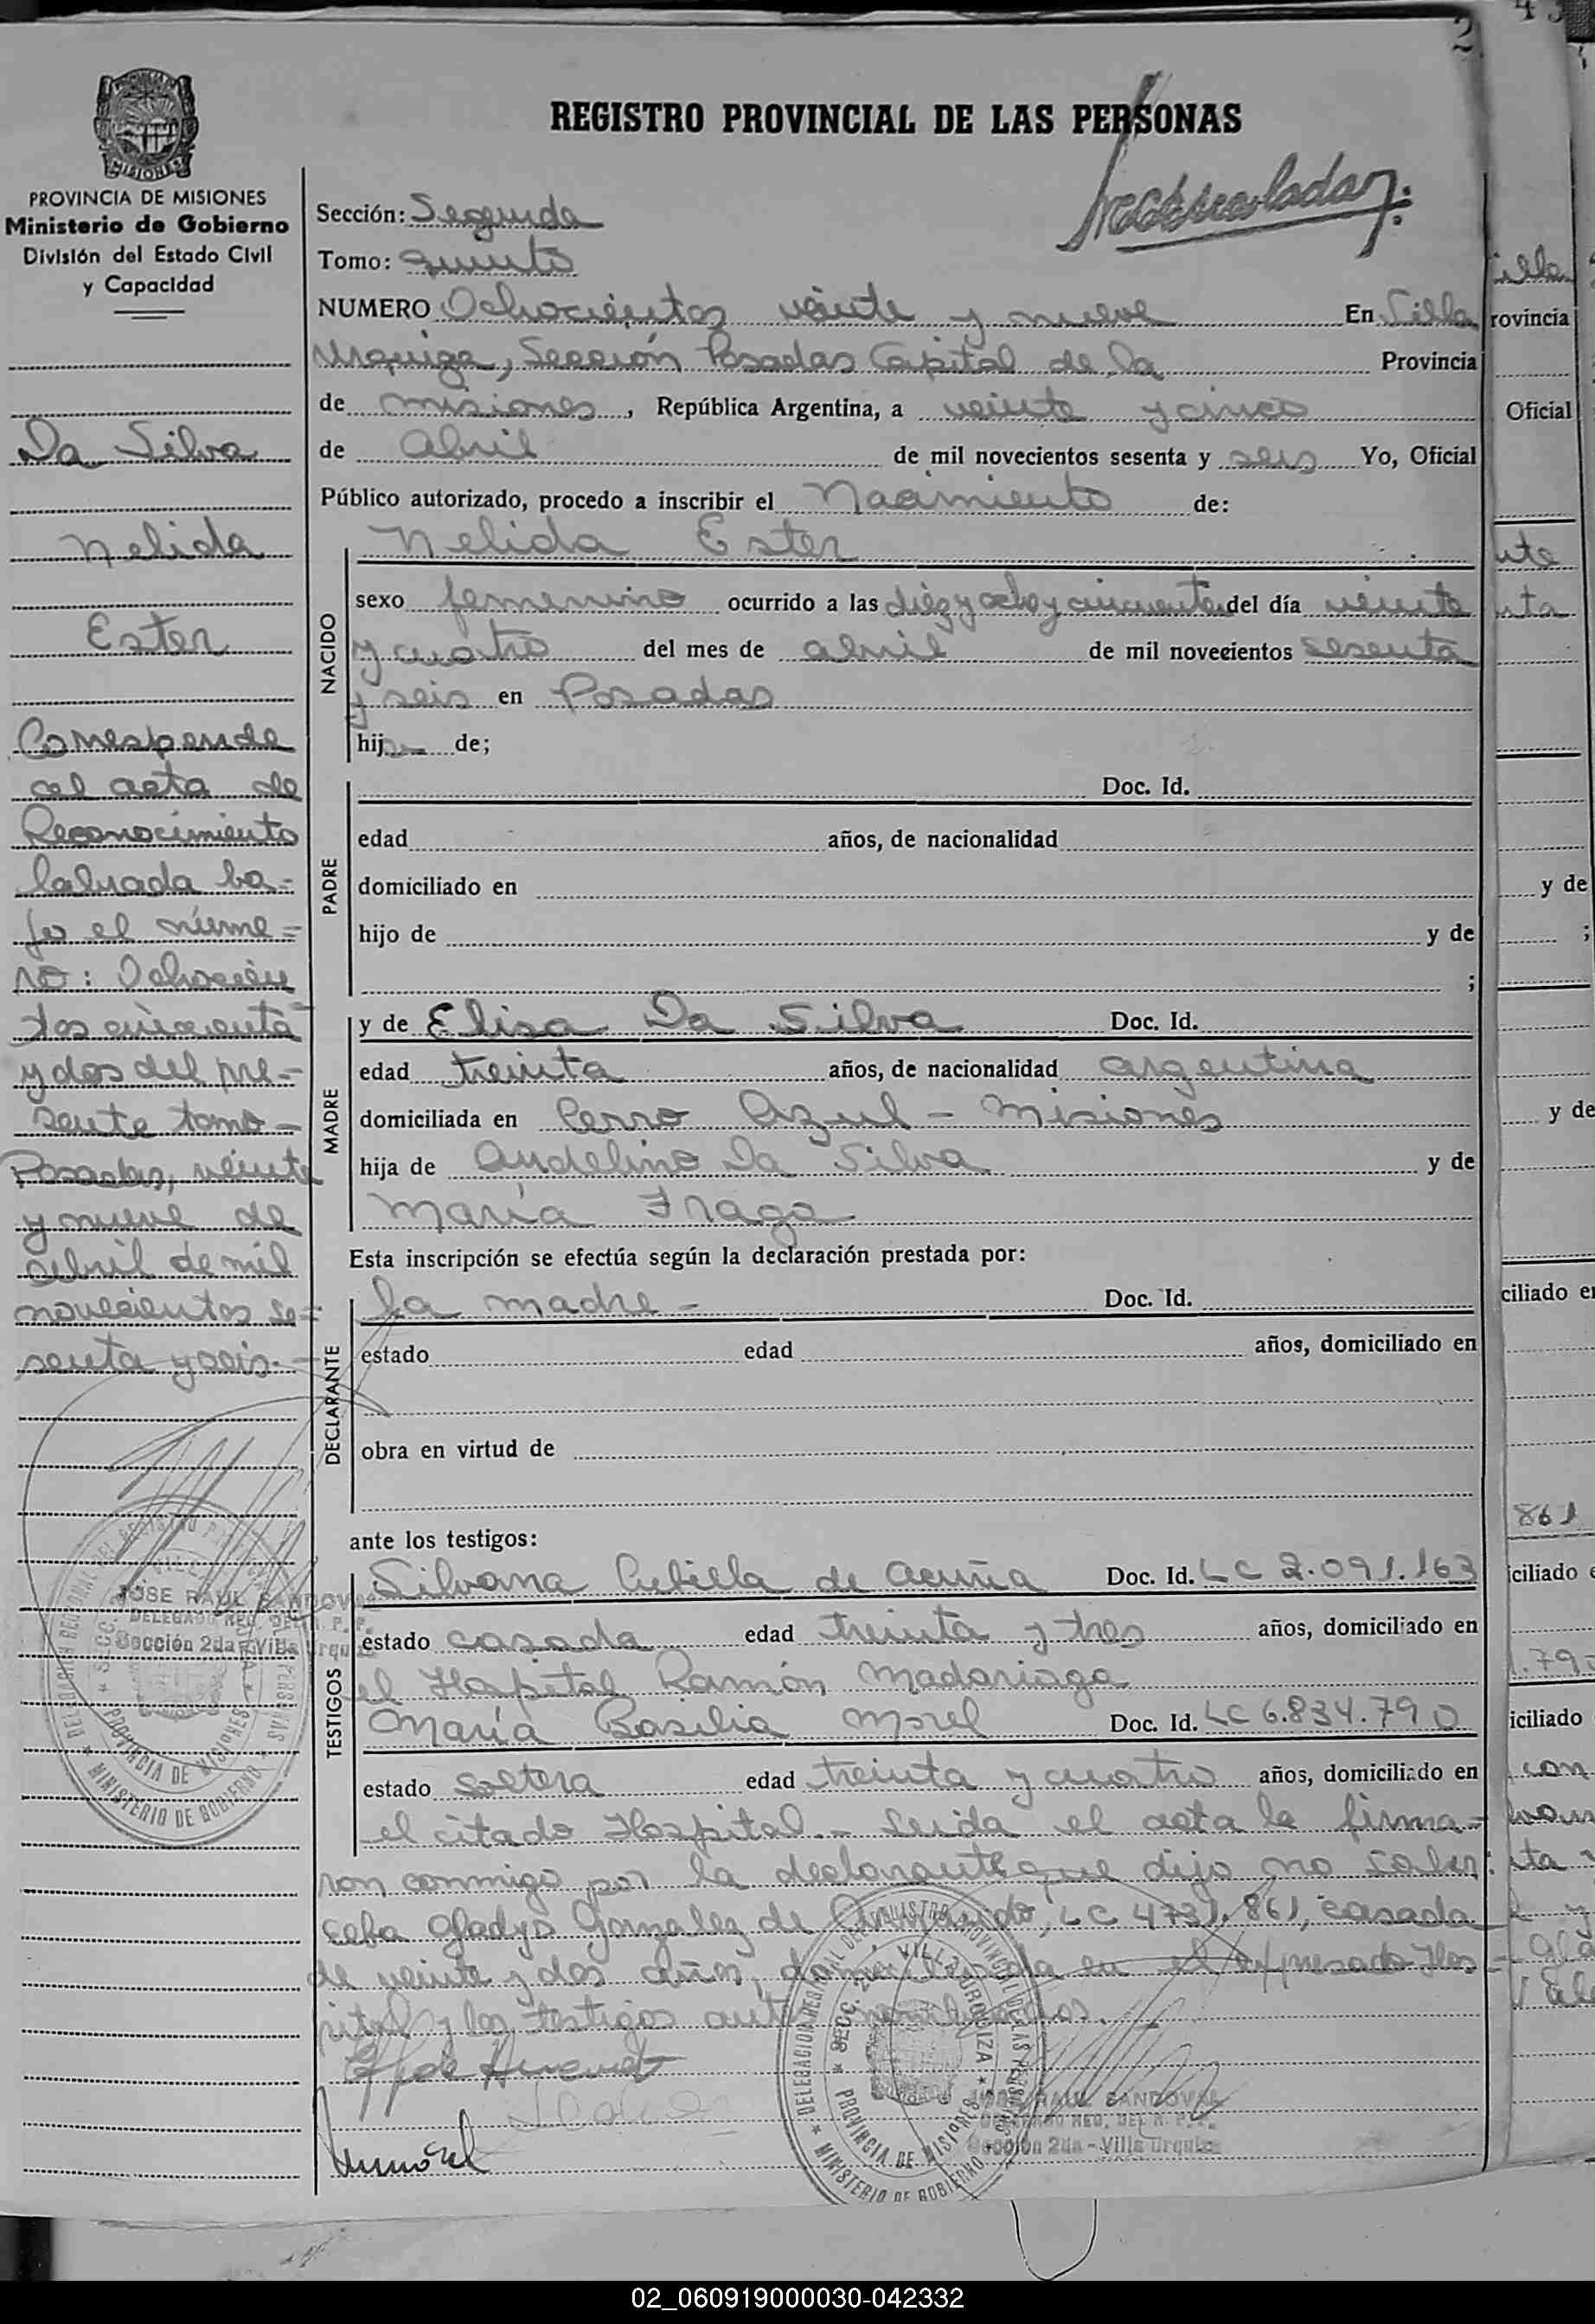 2
REGISTRO PROVINCIAL DE LAS PERSONAS
MISIONES
PROVINCIA DE MISIONES
Ministerio de Gobierno
División del Estado Civil
y Capacidad
Da Silva
Nelida
Ester
Corresponde
al acta de
Reconocimiento
labrada ba-
jo el núme-
ro: Ochocien
tos cincuenta
y dos del pre-
sente tomo-
Posadas, veinte
y nueve de
abril de mil
novecientos se-
senta y seis.-
JOSE RAUL SANDOVAL
DELEGADO REG. DEL R. P. P.
Sección 2da - Villa Urquiza
Sección: Segunda
Tomo: Quinto
NUMERO Ochocientos veinte y nueve En Villa
Urquiza, Sección Posadas Capital de la Provincia
de Misiones, República Argentina, a veinte y cinco
de Abril de mil novecientos sesenta y seis Yo, Oficial
Público autorizado, procedo a inscribir el Nacimiento de:
NACIDO
Nelida Ester
sexo femenino ocurrido a las diez y ocho y cincuenta del día veinte
y cuatro del mes de abril de mil novecientos sesenta
y seis en Posadas
hija de;
PADRE
Doc. Id.
edad años, de nacionalidad
domiciliado en
hijo de y de
;
MADRE
y de Elisa Da Silva Doc. Id.
edad treinta años, de nacionalidad argentina
domiciliada en Cerro Azul - Misiones
hija de Andelino Da Silva y de
María Fraga
Esta inscripción se efectúa según la declaración prestada por:
DECLARANTE
la madre - Doc. Id.
estado edad años, domiciliado en
obra en virtud de
ante los testigos:
TESTIGOS
Silvana Cubilla de Acuña Doc. Id. LC 2.091.163
estado casada edad treinta y tres años, domiciliado en
el Hospital Ramón Madariaga
María Basilia Morel Doc. Id. LC 6.834.790
estado soltera edad treinta y cuatro años, domiciliado en
el citado Hospital. Leida el acta la firma-
ron conmigo por la declarante que dijo no saber:
Gladys Gonzalez de LC 4731.861, casada
de veinte y dos años, domiciliada en el expresado Hos-
pital y los testigos ante nombrados.
DELEGACION REGIONAL DEL REGISTRO PROVINCIAL DE LAS PERSONAS
SECC. 2da. VILLA URQUIZA
PROVINCIA DE MISIONES
MINISTERIO DE GOBIERNO
JOSE RAUL SANDOVAL
DELEGADO REG. DEL R. P. P.
Sección 2da - Villa Urquiza
rovincia
Oficial
y de
;
y de
ciliado en
861
iciliado e
iciliado
02_060919000030-042332